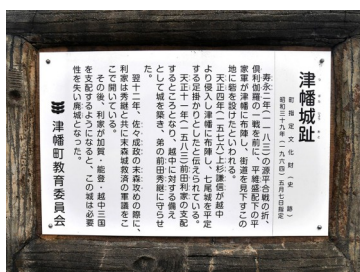 津幡城趾
町指定文化財（史跡）
昭和三十九年（一九六四）五月七日指定
寿永二年（一一八三）の源平合戦の折、
倶利伽羅の一戦を前に、平維盛配下の平
家軍が津幡に布陣し、街道を見下すこの
地に砦を設けたといわれる。
天正四年（一五七六）上杉謙信が越中
より侵入し津幡に布陣し、七尾城を平定
する足掛かりとしたと伝えられている。
天正十一年（一五八三）前田利家の支配
するところとなり、越中に対する備え
として城を築き、弟の前田秀継に守らせ
た。
翌十二年、佐々成政の末森攻めの際に、
利家は秀継と共に末森城救済の軍議をこ
こで開いている。
その後、利家が加賀・能登・越中三国
を支配するようになると、この城は必要
性を失い廃城となった。
津幡町教育委員会